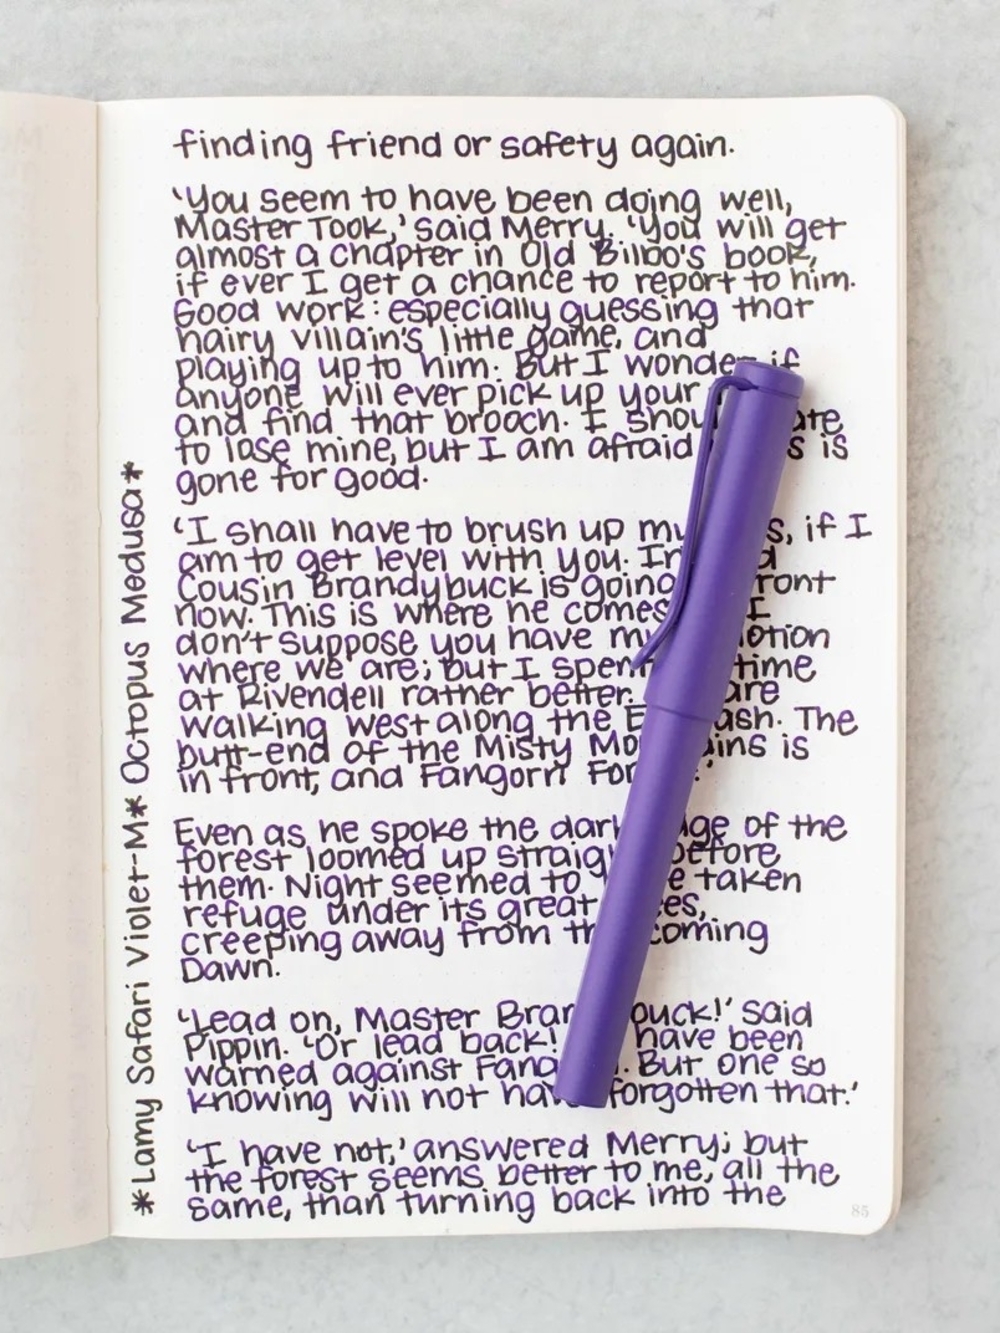 finding friend or safety again.
'You seem to have been doing well,
Master Took,' said Merry. 'You will get
almost a chapter in Old Bilbo's book,
if ever I get a chance to report to him.
Good work: especially guessing that
hairy villain's little game, and
playing up to him. But I wonder if
anyone will ever pick up your
and find that brooch. I
to lose mine, but I am afraid is
gone for good.
'I shall have to brush up if I
am to get level with you.
Cousin Brandybuck is going
now. This is where he comes I
don't suppose you have
where we are; but I spent time
at Rivendell rather better.
walking west along the The
butt-end of the Misty is
in front, and Fangorn
Even as he spoke the of the
forest loomed up before
them. Night seemed to taken
refuge under its great
creeping away from coming
Dawn.
'Lead on, Master said
Pippin. 'Or lead back! have been
warned against But one so
knowing will not have forgotten that.'
'I have not,' answered Merry; but
the forest seems better to me, all the
same, than turning back into the
85
*Lamy Safari Violet-M* Octopus Medusa*